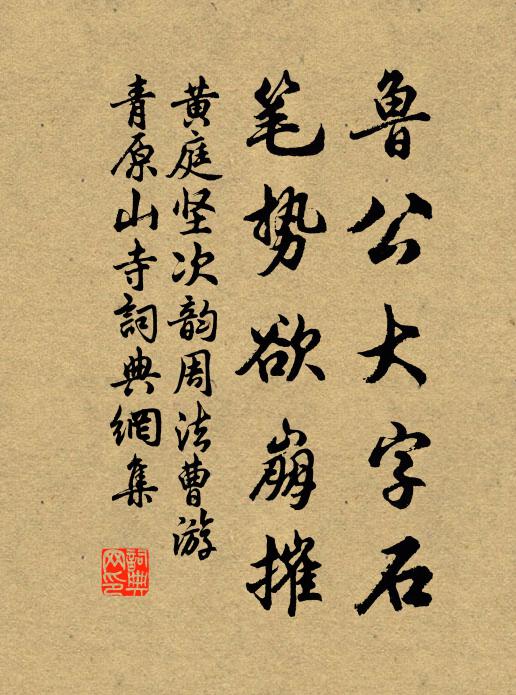 鲁公大字石
笔势欲崩摧
黄庭坚次韵周法曹游
青原山寺詞典網集
詞典网印